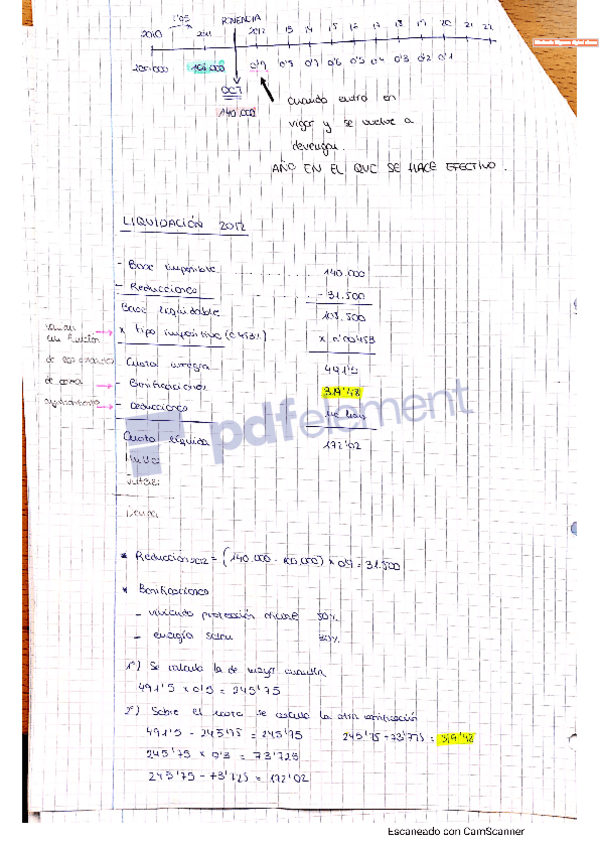 1'05 PONENCIA
2010 2011 2012 13 14 15 16 17 18 19 20 21 22
100.000 105.000 0'9 0'8 0'7 0'6 0'5 0'4 0'3 0'2 0'1
OCT
140.000
cuando entra en
vigor y se vuelve a
devengar.
AÑO EN EL QUE SE HACE EFECTIVO.
LIQUIDACIÓN 2012
- Base imponible 140.000
- Reducciones - 31.500
Base liquidable 108.500
x tipo impositivo (0'453%) x 0'00453
Cuota íntegra 491'5
- Bonificaciones 319'48
- Deducciones no hay
Cuota líquida 172'02
de
de cada
ayuntamiento
* Reducción 2012 = (140.000 - 105.000) x 0'9 = 31.500
* Bonificaciones
- vivienda protección oficial 50%
- energía solar 30%
1º) Se calcula la de mayor cuantía
491'5 x 0'5 = 245'75
2º) Sobre el resto se calcula la otra bonificación
491'5 - 245'75 = 245'75 245'75 - 73'725 = 319'48
245'75 x 0'3 = 73'725
245'75 - 73'725 = 172'02
pdfelement
Escaneado con CamScanner